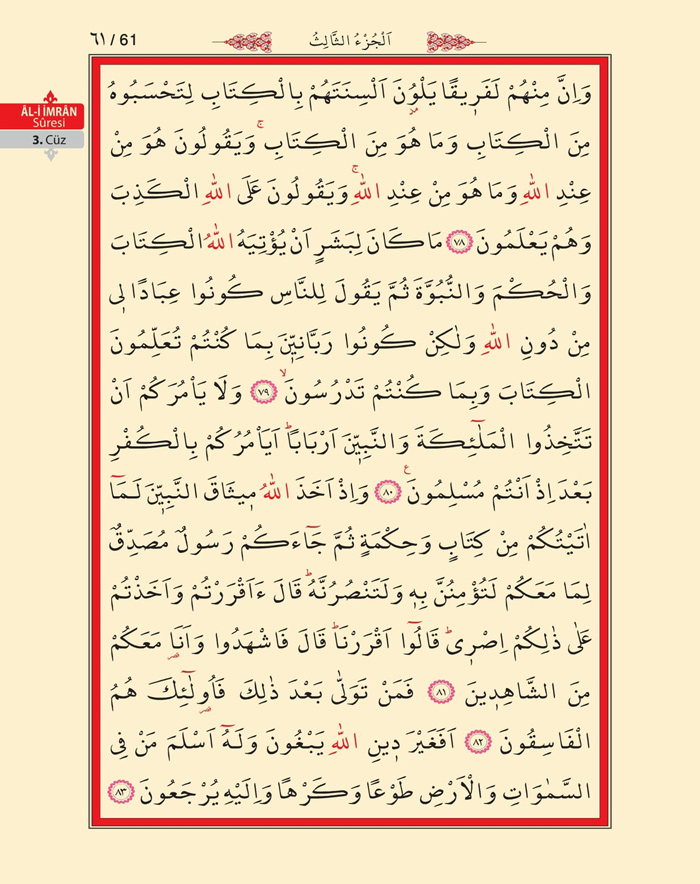 ٦١ / 61
اَلْجُزْءُ الثَّالِثُ
ÂL-İ İMRÂN
Sûresi
3. Cüz
وَاِنَّ مِنْهُمْ لَفَر۪يقًا يَلْوُ۫نَ اَلْسِنَتَهُمْ بِالْكِتَابِ لِتَحْسَبُوهُ
مِنَ الْكِتَابِ وَمَا هُوَ مِنَ الْكِتَابِۚ وَيَقُولُونَ هُوَ مِنْ
عِنْدِ اللّٰهِ وَمَا هُوَ مِنْ عِنْدِ اللّٰهِۚ وَيَقُولُونَ عَلَى اللّٰهِ الْكَذِبَ
وَهُمْ يَعْلَمُونَ ﴿٧٨﴾ مَا كَانَ لِبَشَرٍ اَنْ يُؤْتِيَهُ اللّٰهُ الْكِتَابَ
وَالْحُكْمَ وَالنُّبُوَّةَ ثُمَّ يَقُولَ لِلنَّاسِ كُونُوا عِبَادًا ل۪ي
مِنْ دُونِ اللّٰهِ وَلٰكِنْ كُونُوا رَبَّانِيّ۪نَ بِمَا كُنْتُمْ تُعَلِّمُونَ
الْكِتَابَ وَبِمَا كُنْتُمْ تَدْرُسُونَۙ ﴿٧٩﴾ وَلَا يَأْمُرَكُمْ اَنْ
تَتَّخِذُوا الْمَلٰٓئِكَةَ وَالنَّبِيّ۪نَ اَرْبَابًاۜ اَيَأْمُرُكُمْ بِالْكُفْرِ
بَعْدَ اِذْ اَنْتُمْ مُسْلِمُونَ۟ ﴿٨٠﴾ وَاِذْ اَخَذَ اللّٰهُ م۪يثَاقَ النَّبِيّ۪نَ لَمَٓا
اٰتَيْتُكُمْ مِنْ كِتَابٍ وَحِكْمَةٍ ثُمَّ جَٓاءَكُمْ رَسُولٌ مُصَدِّقٌ
لِمَا مَعَكُمْ لَتُؤْمِنُنَّ بِه۪ وَلَتَنْصُرُنَّهُۜ قَالَ ءَاَقْرَرْتُمْ وَاَخَذْتُمْ
عَلٰى ذٰلِكُمْ اِصْر۪يۜ قَالُٓوا اَقْرَرْنَاۜ قَالَ فَاشْهَدُوا وَاَنَا۬ مَعَكُمْ
مِنَ الشَّاهِد۪ينَ ﴿٨١﴾ فَمَنْ تَوَلّٰى بَعْدَ ذٰلِكَ فَاُو۬لٰٓئِكَ هُمُ
الْفَاسِقُونَ ﴿٨٢﴾ اَفَغَيْرَ د۪ينِ اللّٰهِ يَبْغُونَ وَلَهُٓ اَسْلَمَ مَنْ فِي
السَّمٰوَاتِ وَالْاَرْضِ طَوْعًا وَكَرْهًا وَاِلَيْهِ يُرْجَعُونَ ﴿٨٣﴾